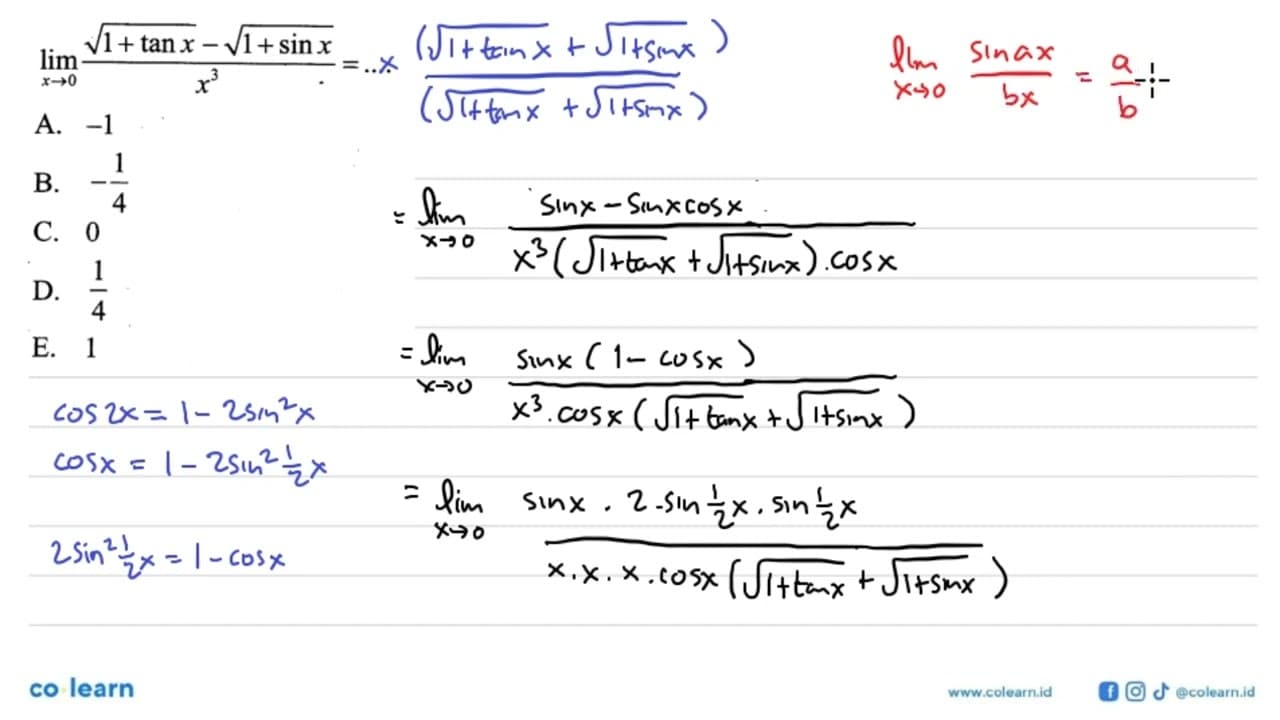 lim x→0 (√(1 + tan x) − √(1 + sin x)) / x³ = ... × (√1+tan x + √1+sin x) / (√1+tan x + √1+sin x)
lim x→0 sin ax / bx = a / b
A. −1
B. −1/4
C. 0
D. 1/4
E. 1
= lim x→0 sin x − sin x cos x / x³ (√1+tan x + √1+sin x) . cos x
= lim x→0 sin x (1 − cos x) / x³ . cos x (√1+tan x + √1+sin x)
cos 2x = 1 − 2 sin² x
cos x = 1 − 2 sin² ½ x
2 sin² ½ x = 1 − cos x
= lim x→0 sin x . 2 . sin ½ x . sin ½ x / x . x . x . cos x (√1+tan x + √1+sin x)
co learn
www.colearn.id
@colearn.id